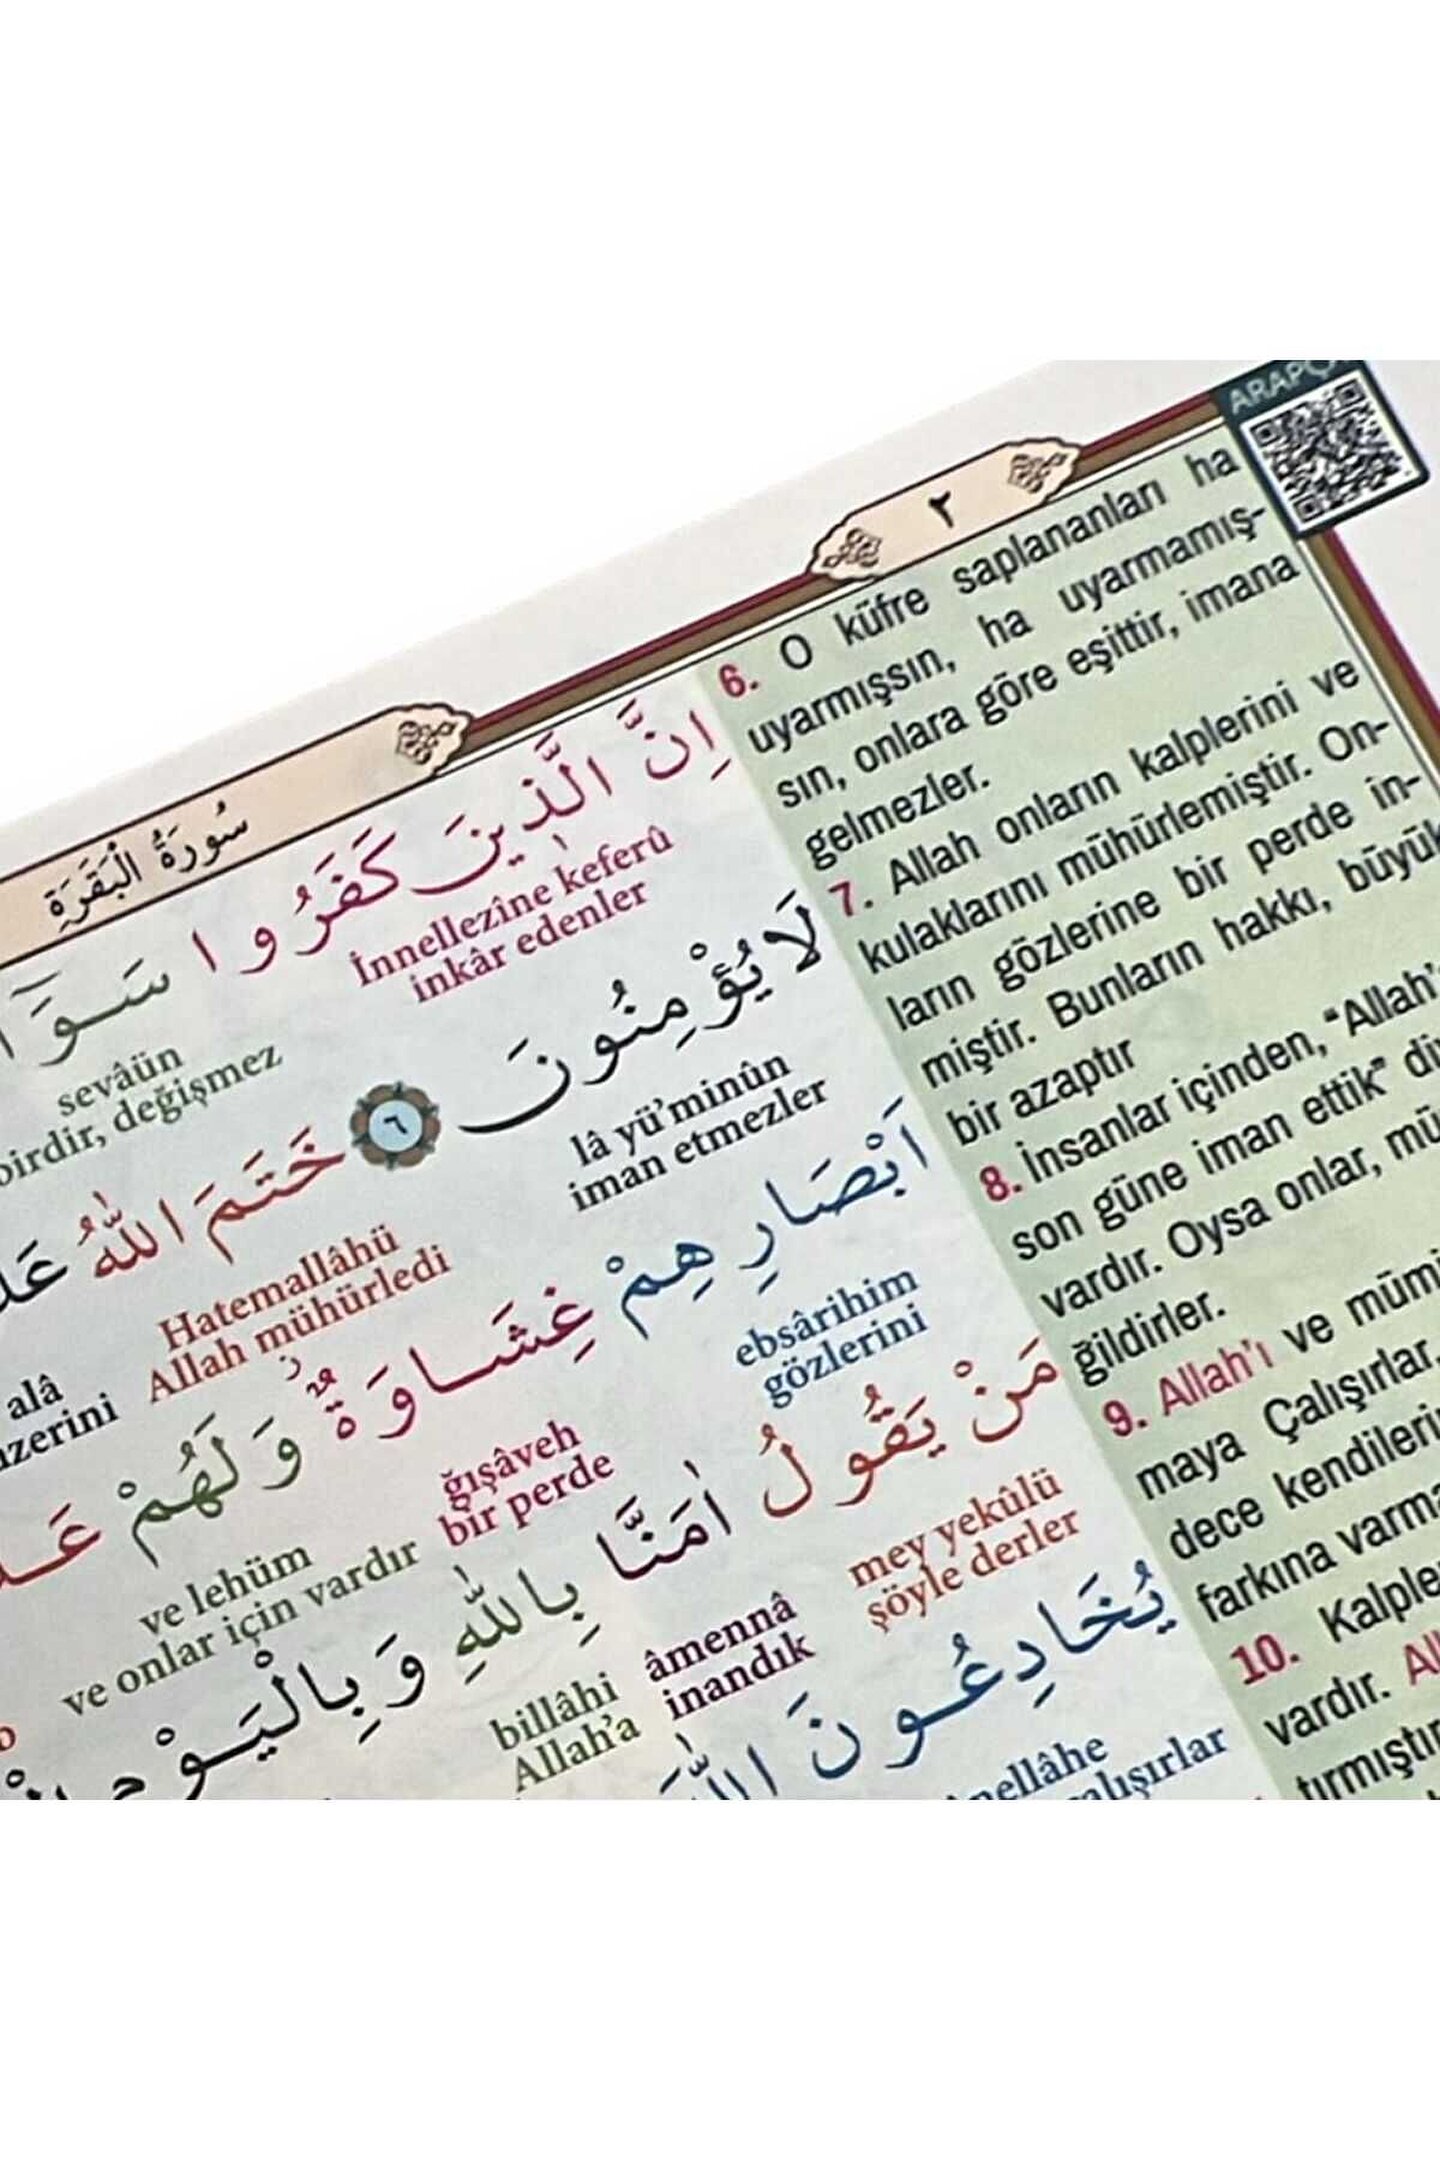 ٢
سُورَةُ الْبَقَرَةِ
اِنَّ الَّذ۪ينَ كَفَرُوا
İnnellezîne keferû
inkâr edenler
sevâün
birdir, değişmez
لَا يُؤْمِنُونَ ٦ خَتَمَ اللّٰهُ
lâ yü’minûn
iman etmezler
Hatemallâhü
Allah mühürledi
alâ
üzerini
اَبْصَارِهِمْ غِشَاوَةٌ وَلَهُمْ
ebsârihim
gözlerini
ğışâveh
bir perde
ve lehüm
ve onlar için vardır
مَنْ يَقُولُ اٰمَنَّا بِاللّٰهِ وَبِالْيَوْمِ
mey yekûlü
şöyle derler
âmennâ
inandık
billâhi
Allah’a
يُخَادِعُونَ اللّٰهَ
6. O küfre saplananları ha
uyarmışsın, ha uyarmamış-
sın, onlara göre eşittir, imana
gelmezler.
7. Allah onların kalplerini ve
kulaklarını mühürlemiştir. On-
ların gözlerine bir perde in-
miştir. Bunların hakkı, büyük
bir azaptır
8. İnsanlar içinden, “Allah’
son güne iman ettik”
vardır. Oysa onlar,
ğildirler.
9. Allah’ı ve
maya Çalışırlar,
dece
farkına
10.
vardır.